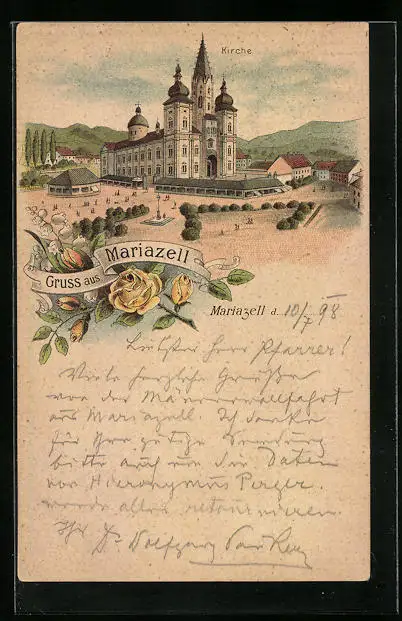 Kirche
Gruss aus Mariazell
Mariazell d. 10/7 98
Liebster Herr Pfarrer!
Viele herzliche Grüße
von der Männerwallfahrt
aus Mariazell. Ich danke
für Ihre gütige Sendung
bitte auch um die Daten
von Hieronymus Perger.
werde alles retournieren.
Ihr Dr Wolfgang